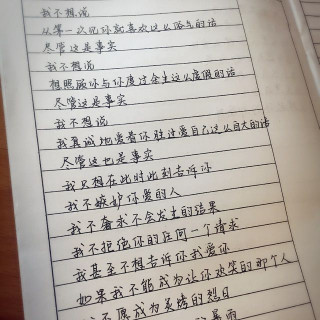 我不想说
从第一次见你就喜欢这么俗气的话
尽管这是事实
我不想说
想照顾你与你度过余生这么虚假的话
尽管这是事实
我不想说
我真诚地爱着你胜过爱自己这么自大的话
尽管这也是事实
我只想在此时此刻告诉你
我不嫉妒你爱的人
我不奢求不会发生的结果
我不拒绝你的任何一个请求
我甚至不想告诉你我爱你
如果我不能成为让你欢笑的那个人
我不愿成为灵魂的烈日
暴雨